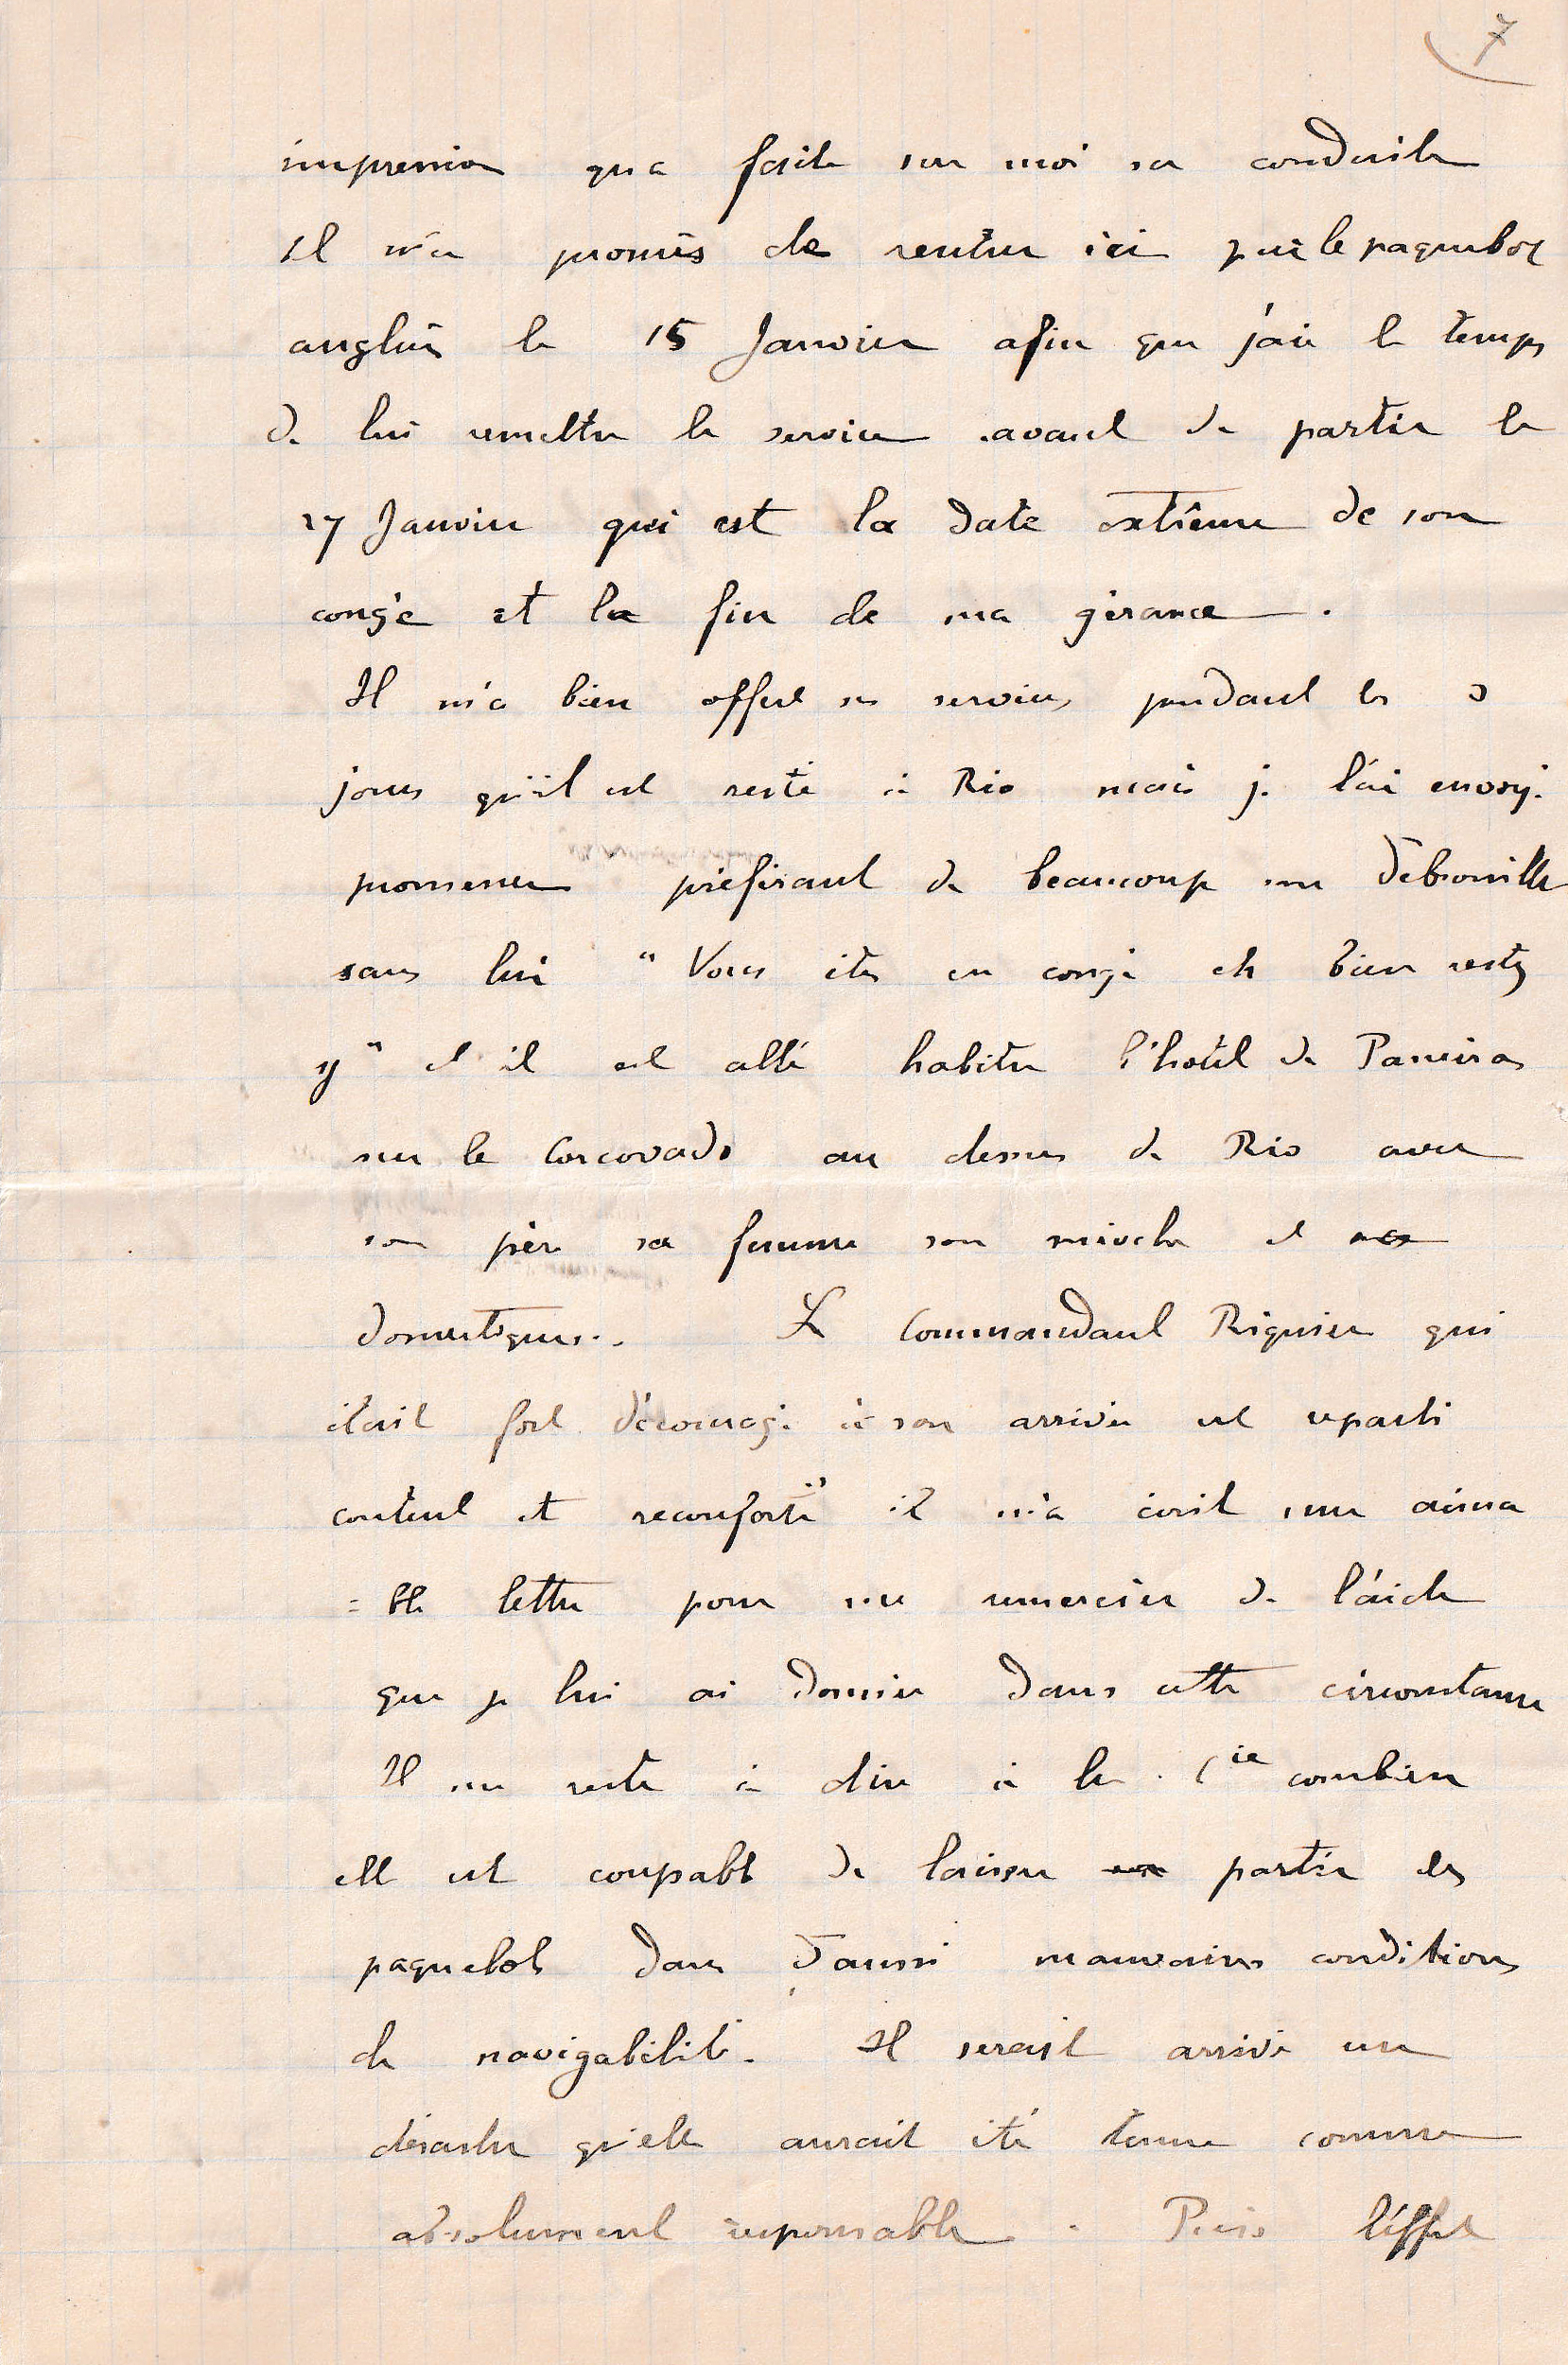 7
impression qu'a faite sur moi sa conduite
Il m'a promis de rentrer ici par le paquebot
anglais le 15 Janvier afin que j'aie le temps
de lui remettre le service avant de partir le
27 Janvier qui est la date extrême de son
congé et la fin de ma gérance.
Il m'a bien offert ses services pendant les
jours qu'il est resté à Rio mais je l'ai envoyé
promener préférant de beaucoup me débrouiller
sans lui " Vous êtes en congé eh bien restez
y " et il est allé habiter l'hôtel de Paneiras
sur le Corcovado au dessus de Rio avec
son père sa femme son mioche et
domestiques. Le Commandant Riquier qui
était fort découragé à son arrivée est reparti
content et reconforté il m'a écrit une aima
= ble lettre pour me remercier de l'aide
que je lui ai donnée dans cette circonstance
Il me reste à dire à la Cie combien
elle est coupable de laisser partir des
paquebots dans d'aussi mauvaises conditions
de navigabilité. Il serait arrivé un
désastre qu'elle aurait été tenue comme
absolument responsable. Puis l'effet